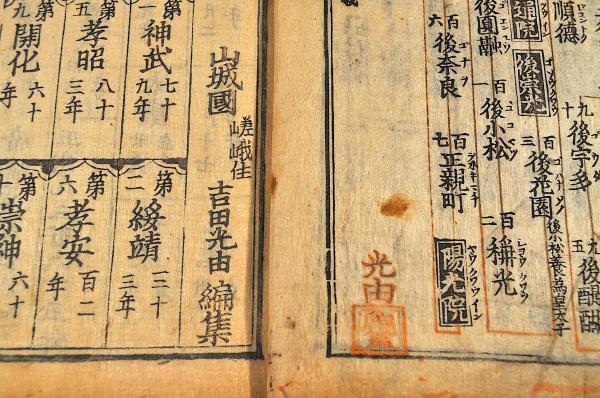 順德
九五 後醍醐
九十 後宇多
後小松養為皇太子
百三 後花園
後崇光
百二 稱光
シヨウクワウ
百一 後小松
後圓融
百六 後奈良
ゴナラ
百七 正親町
陽光院
ヤウクワウイン
光由
山城國 嵯峨住 吉田光由 編集
第一 神武 七十九年
第二 綏靖 三十三年
第 孝昭 八十三年
第六 孝安 百二年
九 開化 六十年
第十 崇神 六十